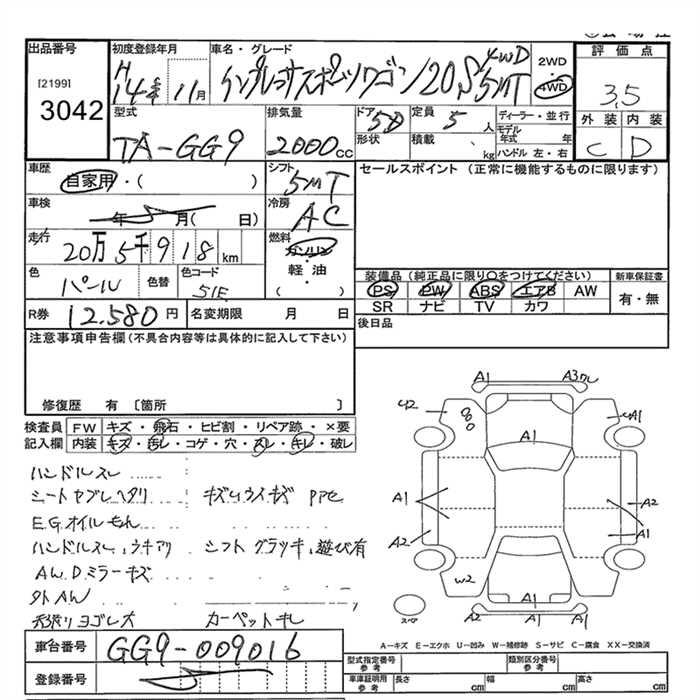 出品番号 初度登録年月 車名・グレード 評価点
[2199] H14年 11月 インプレッサスポーツワゴン/20S 4WD 5MT 2WD 4WD 3.5
3042
型式 排気量 ドア 定員 ディーラー・並行 外装 内装
TA-GG9 2000cc 5D 5人 モデル年式 年 C D
形状 積載 kg ハンドル 左・右
車歴 シフト セールスポイント (正常に機能するものに限ります)
自家用・( ) 5MT
車検 冷房
年 月( 日) AC
走行 燃料
20万5千918km ガソリン
色 色替 色コード 軽・油 装備品(純正品に限り○をつけてください) 新車保証書
パール 51E ( ) PS PW ABS エアB AW 有・無
SR ナビ TV カワ
R券 12.580円 名変期限 月 日 後日品
注意事項申告欄(不具合内容等は具体的に記入して下さい)
修復歴 有 〔箇所 〕
検査員 FW キズ・飛石・ヒビ割・リペア跡・×要
記入欄 内装 キズ・汚し・コゲ・穴・スレ・キレ・破レ
ハンドルスレ
シートヤブレヘタリ キズ
E.G.オイルもれ
ハンドルスレ、ウキアリ シフト グラツキ、遊び有
AW.Dミラーキズ
外AW
ヨゴレ大 カーペットキレ
A1 A3
U2 A1 A1
A1 A2
A2 A1
W2 A1
A2 A1 A1
A-キズ E-エクボ U-凹み W-補修跡 S-サビ C-腐食 XX-交換済
車台番号 GG9-009016
登録番号
型式指定番号 参考 類別区分番号 参考
車庫証明用 参考 長さ cm 幅 cm 高さ cm